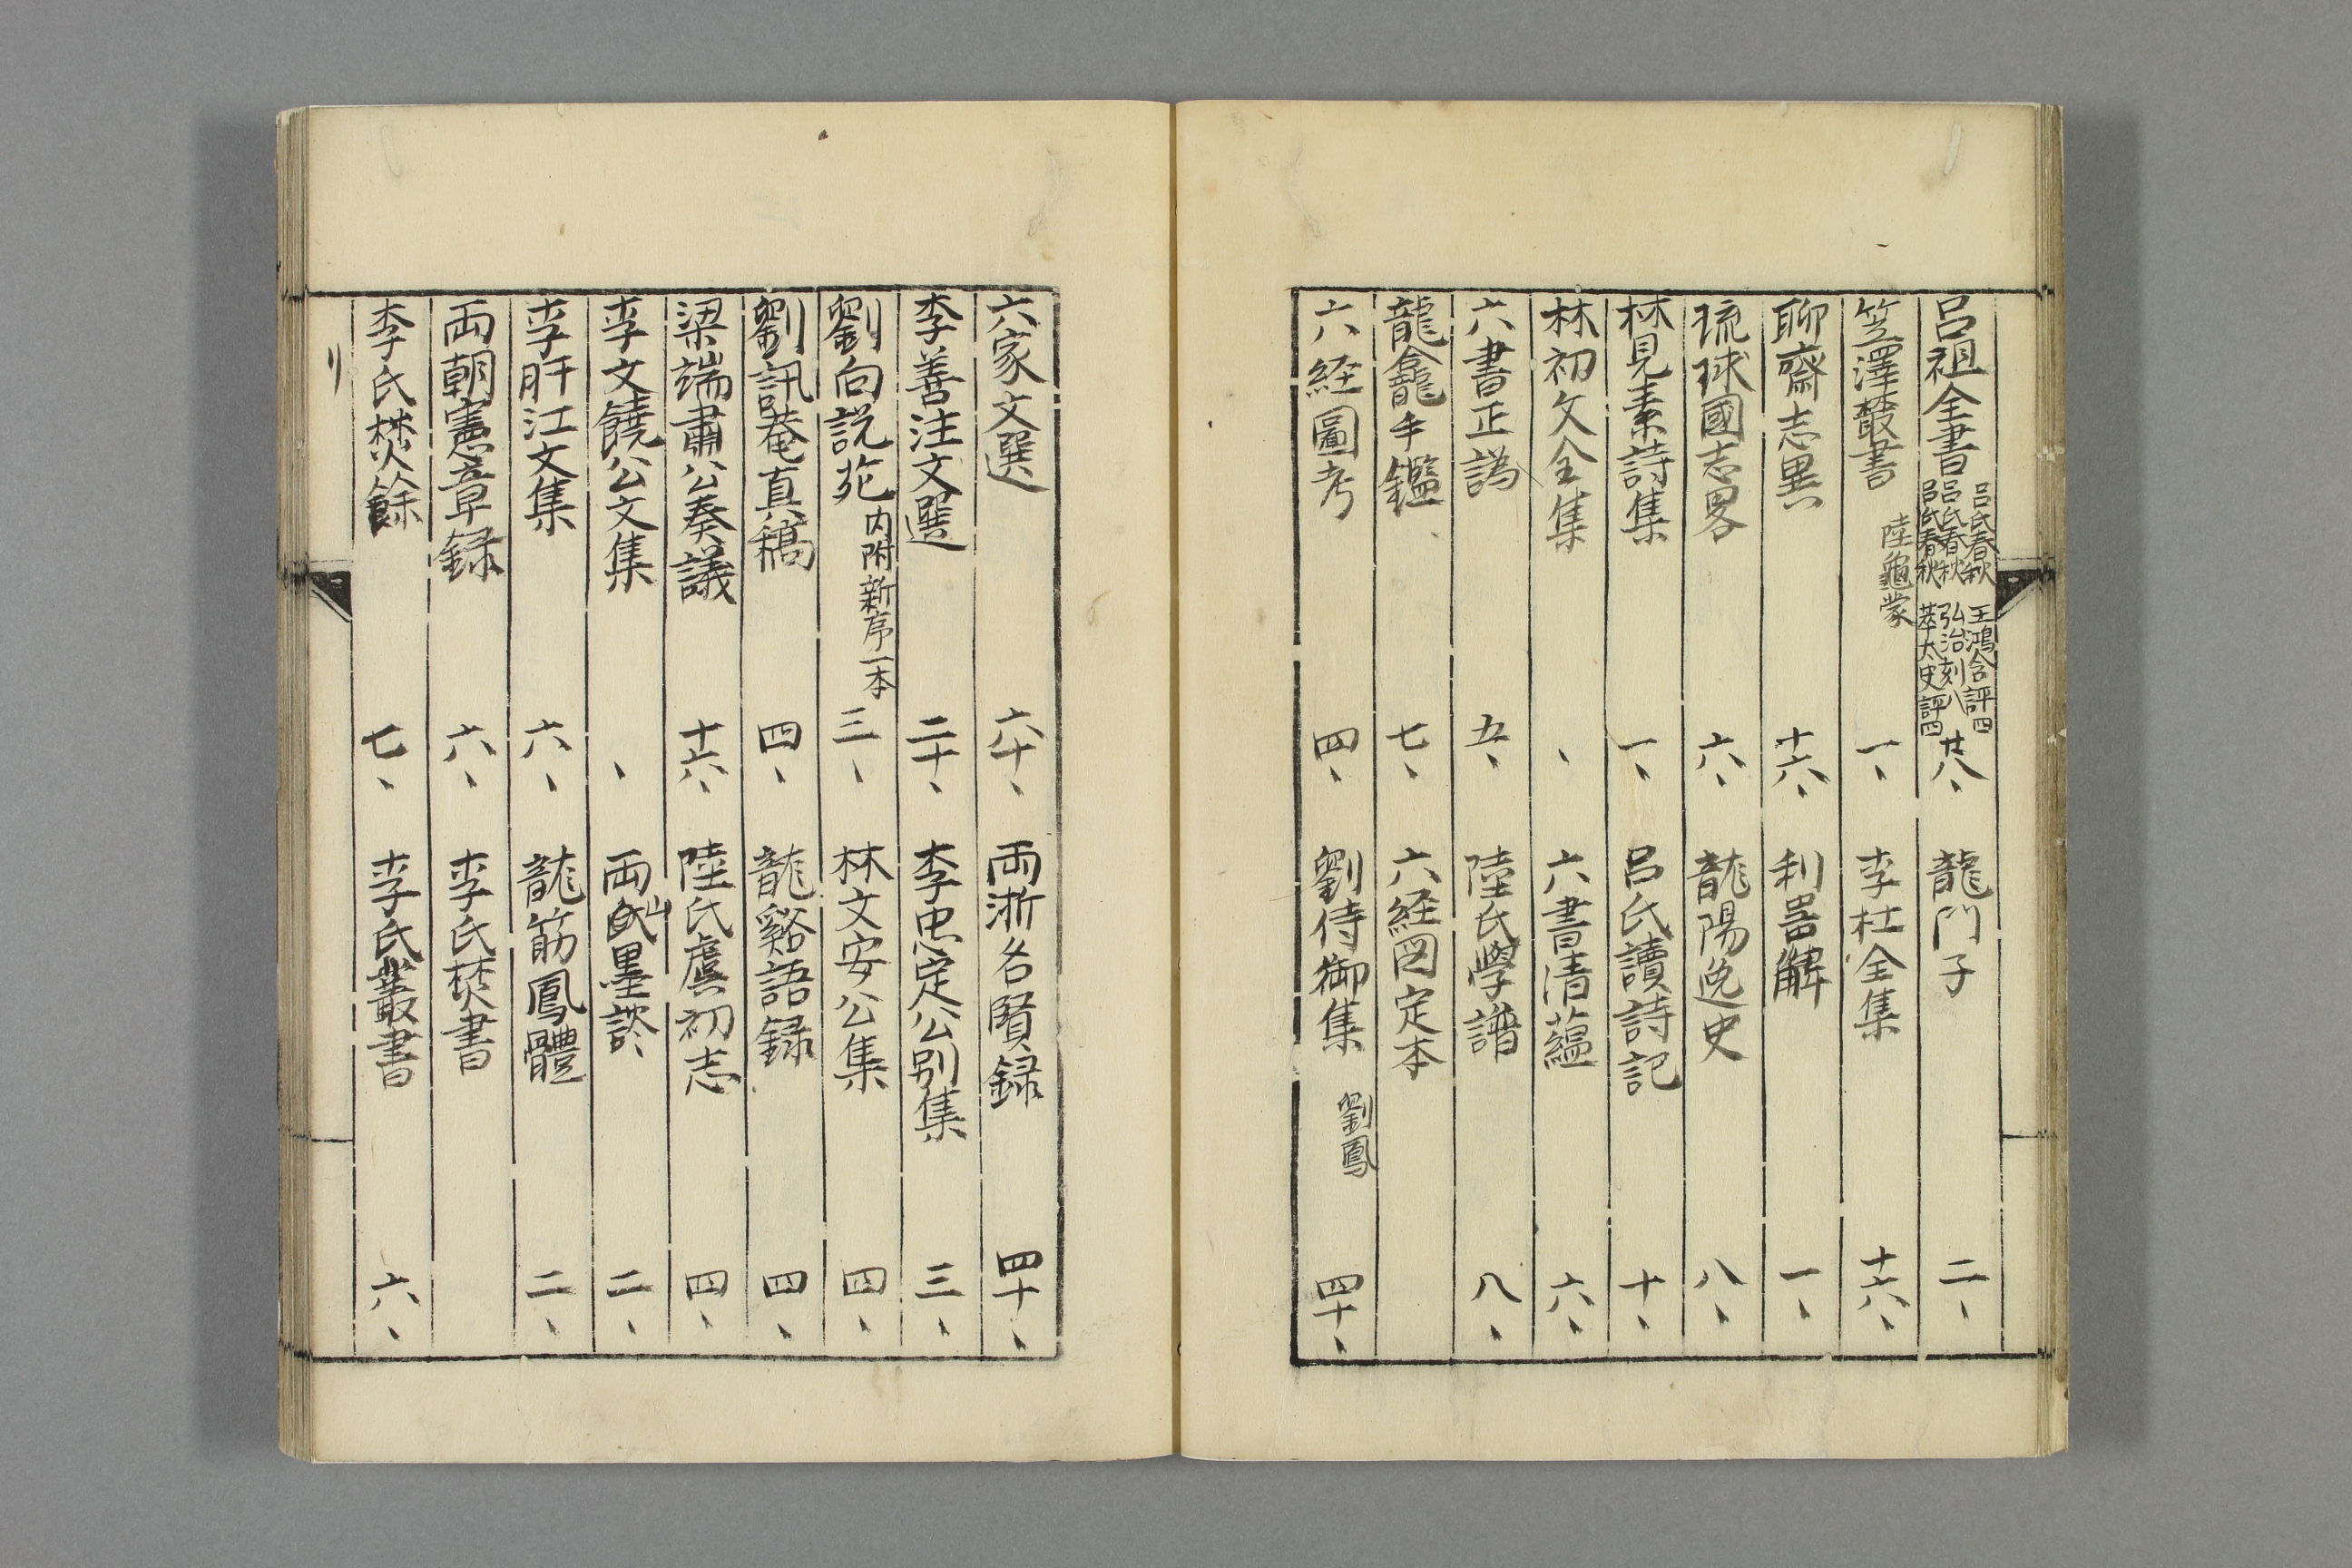 呂祖全書 呂氏春秋 王鴻含評四 呂氏春秋 弘治刻八 呂氏春秋 莘太史評四 廿八、 龍門子 二、
笠澤叢書 陸龜蒙 一、 李杜全集 十六、
聊齋志異 十六、 利器解 一、
琉球國志畧 六、 龍陽逸史 八、
林見素詩集 一、 呂氏讀詩記 十、
林初文全集 、 六書清蘊 六、
六書正譌 五、 陸氏學譜 八、
龍龕手鑑 七、 六経図定本
六経圖考 四、 劉侍御集 劉鳳 四十、
六家文選 六十、 両浙名賢録 四十、
李善注文選 二十、 李忠定公別集 三、
劉向説苑 内附新序一本 三、 林文安公集 四、
劉訊菴真稿 四、 龍谿語録 四、
梁端肅公奏議 十六、 陸氏虞初志 四、
李文饒公文集 、 両山墨談 二、
李盱江文集 六、 龍筋鳳體 二、
両朝憲章録 六、 李氏焚書
李氏焚餘 七、 李氏叢書 六、
リ